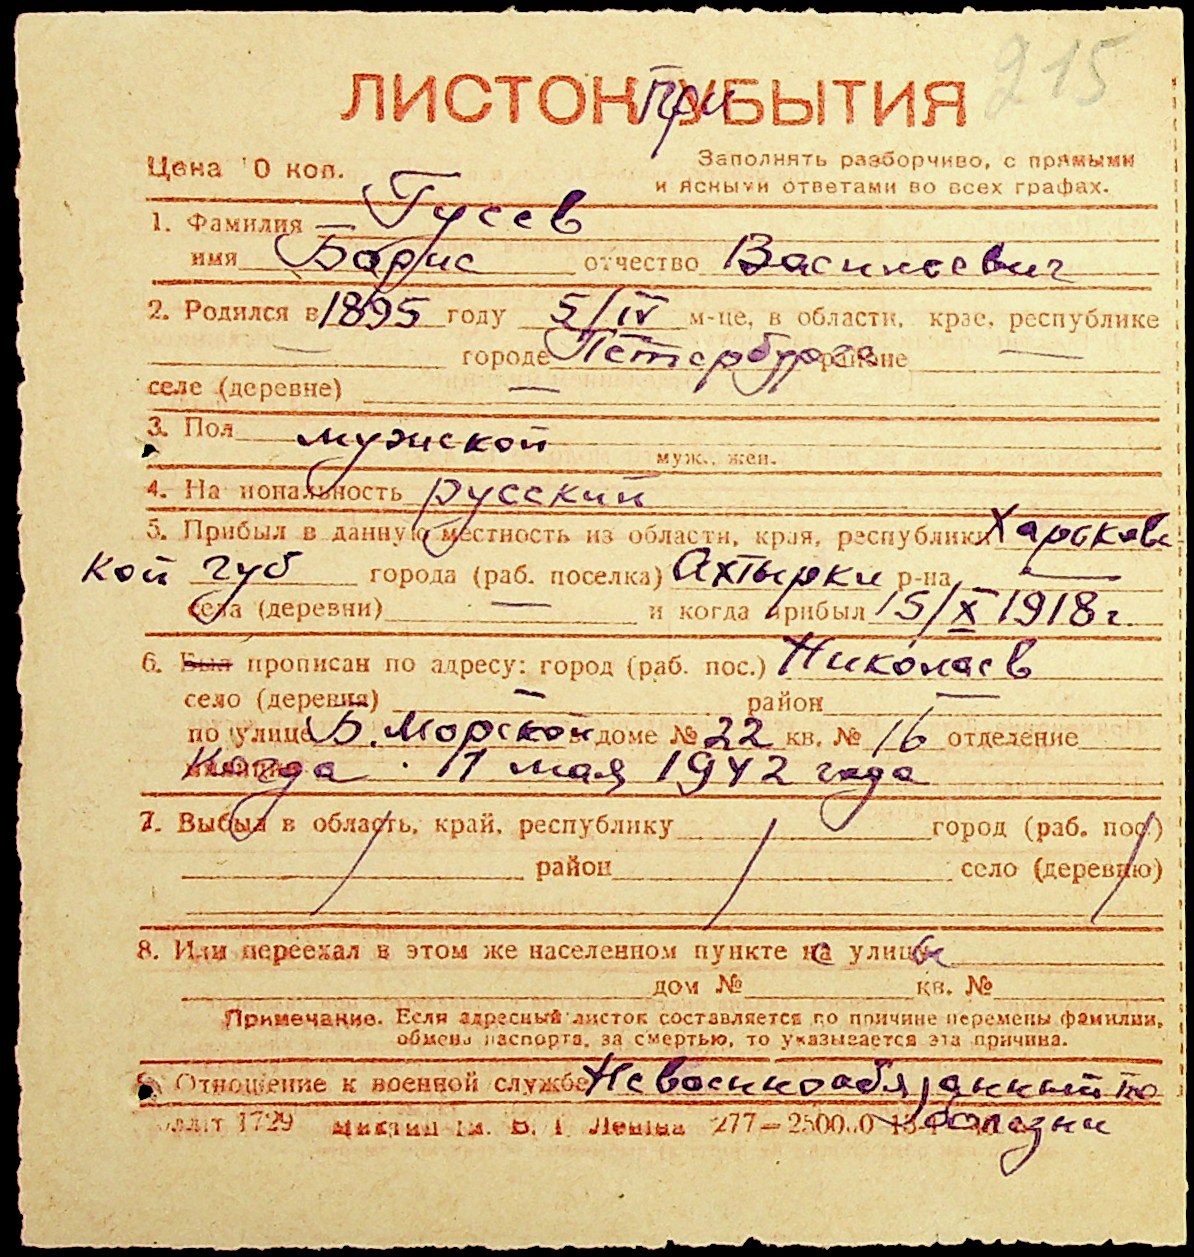 215
ЛИСТОК ПриУБЫТИЯ
Цена 10 коп.
Заполнять разборчиво, с прямыми
и ясными ответами во всех графах.
1. Фамилия Гусев
имя Борис отчество Васильевич
2. Родился в 1895 году 5/IV м-це, в области, крае, республике
— городе Петербурге районе —
селе (деревне) —
3. Пол мужской
муж., жен.
4. Национальность русский
5. Прибыл в данную местность из области, края, республики Харьковс
кой губ города (раб. поселка) Ахтырки р-на —
села (деревни) — и когда прибыл 15/X 1918 г.
6. Был прописан по адресу: город (раб. пос.) Николаев
село (деревня) — район —
по улице Б. Морской в доме № 22 кв. № 16 отделение
Когда 17 мая 1942 года
7. Выбыл в область, край, республику город (раб. пос.)
район село (деревню)
8. Или переехал в этом же населенном пункте с улицы
дом № кв. №
Примечание. Если адресный листок составляется по причине перемены фамилии,
обмена паспорта, за смертью, то указывается эта причина.
9. Отношение к военной службе Невоеннообязанный по
1729 им. В. И. Ленина 277— болезни